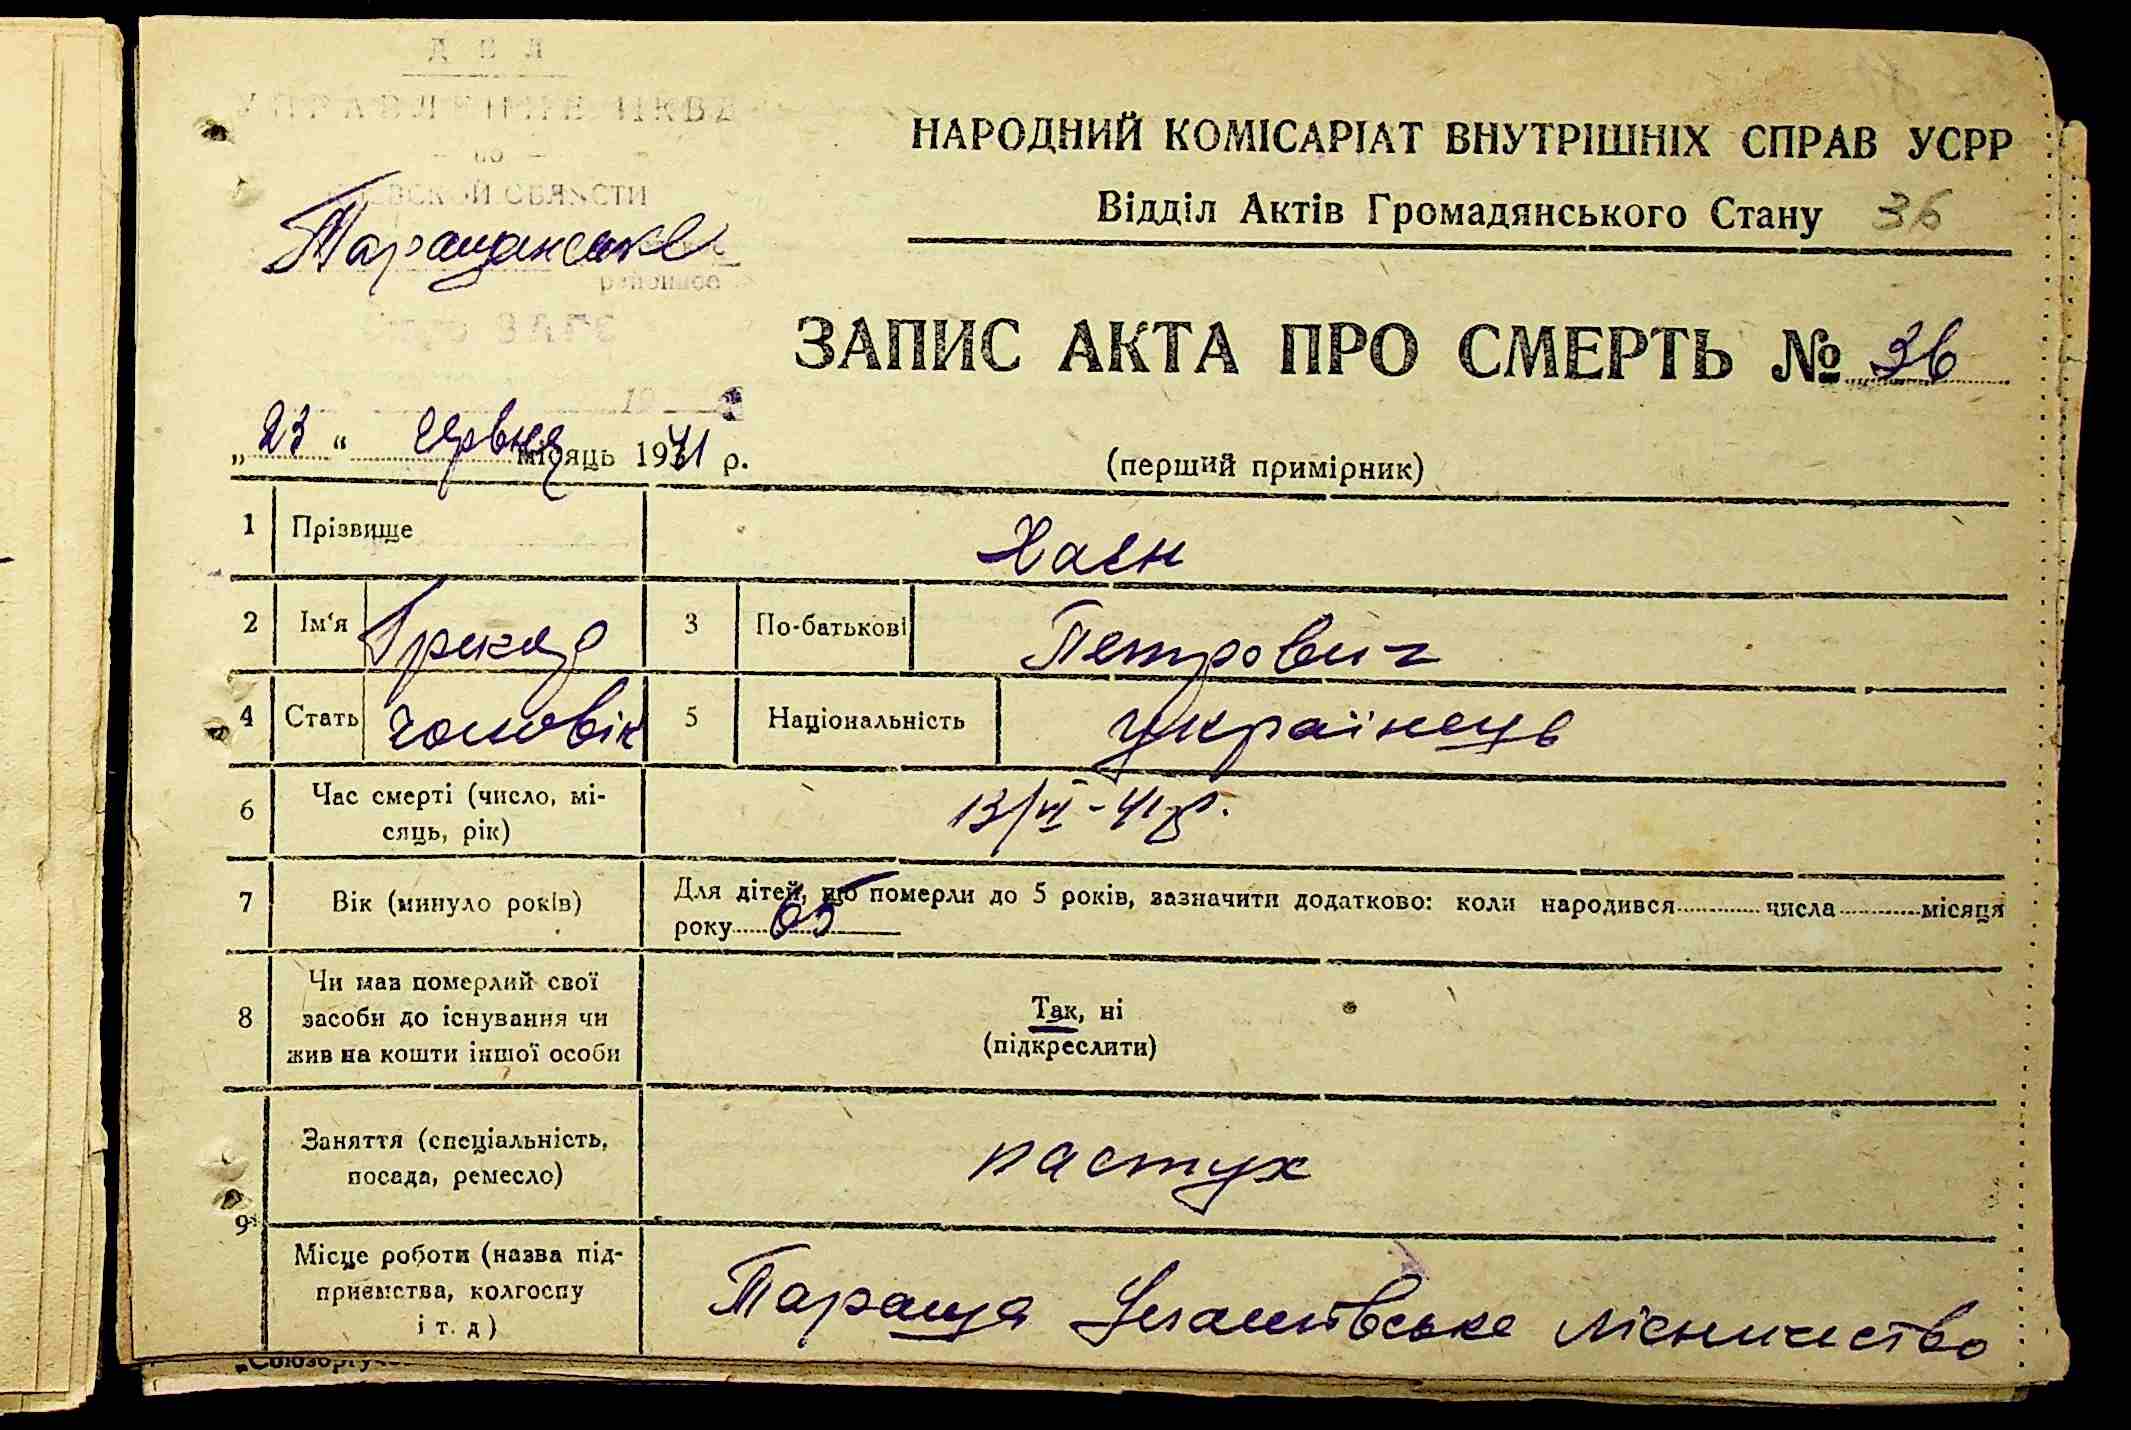 УПРАВЛЕНИЕ НКВД
по
КИЕВСКОЙ ОБЛАСТИ
Таращанське
районное
НАРОДНИЙ КОМІСАРІАТ ВНУТРІШНІХ СПРАВ УСРР
Відділ Актів Громадянського Стану 36
ЗАПИС АКТА ПРО СМЕРТЬ № 36
„23“ червня місяць 1941 р.
(перший примірник)
1 Прізвище Хаєн
2 Ім‘я 3 По-батькові Петрович
4 Стать чоловік 5 Національність українець
6 Час смерті (число, мі-
сяць, рік) 13/VI-41 р.
7 Вік (минуло років) Для дітей, що померли до 5 років, зазначити додатково: коли народився числа місяця
року 65
8 Чи мав померлий свої
засоби до існування чи
жив на кошти іншої особи
Так, ні
(підкреслити)
9 Заняття (спеціальність,
посада, ремесло) пастух
Місце роботи (назва під-
приємства, колгоспу
і т. д) Тараща лісництво